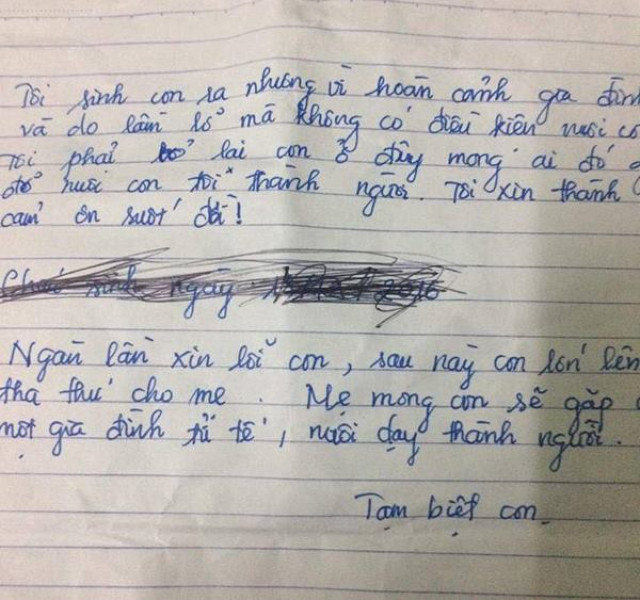 Tôi sinh con ra nhưng vì hoàn cảnh gia đình
và do lầm lỡ mà không có điều kiện nuôi co
Tôi phải bỏ lại con ở đây mong ai đó
đó nuôi con tôi thành người. Tôi xin thành
cảm ơn suốt đời!
sinh ngày 2016
Ngàn lần xin lỗi con, sau này con lớn lên
tha thứ cho mẹ. Mẹ mong con sẽ gặp
một gia đình tử tế, nuôi dạy thành người.
Tạm biệt con.